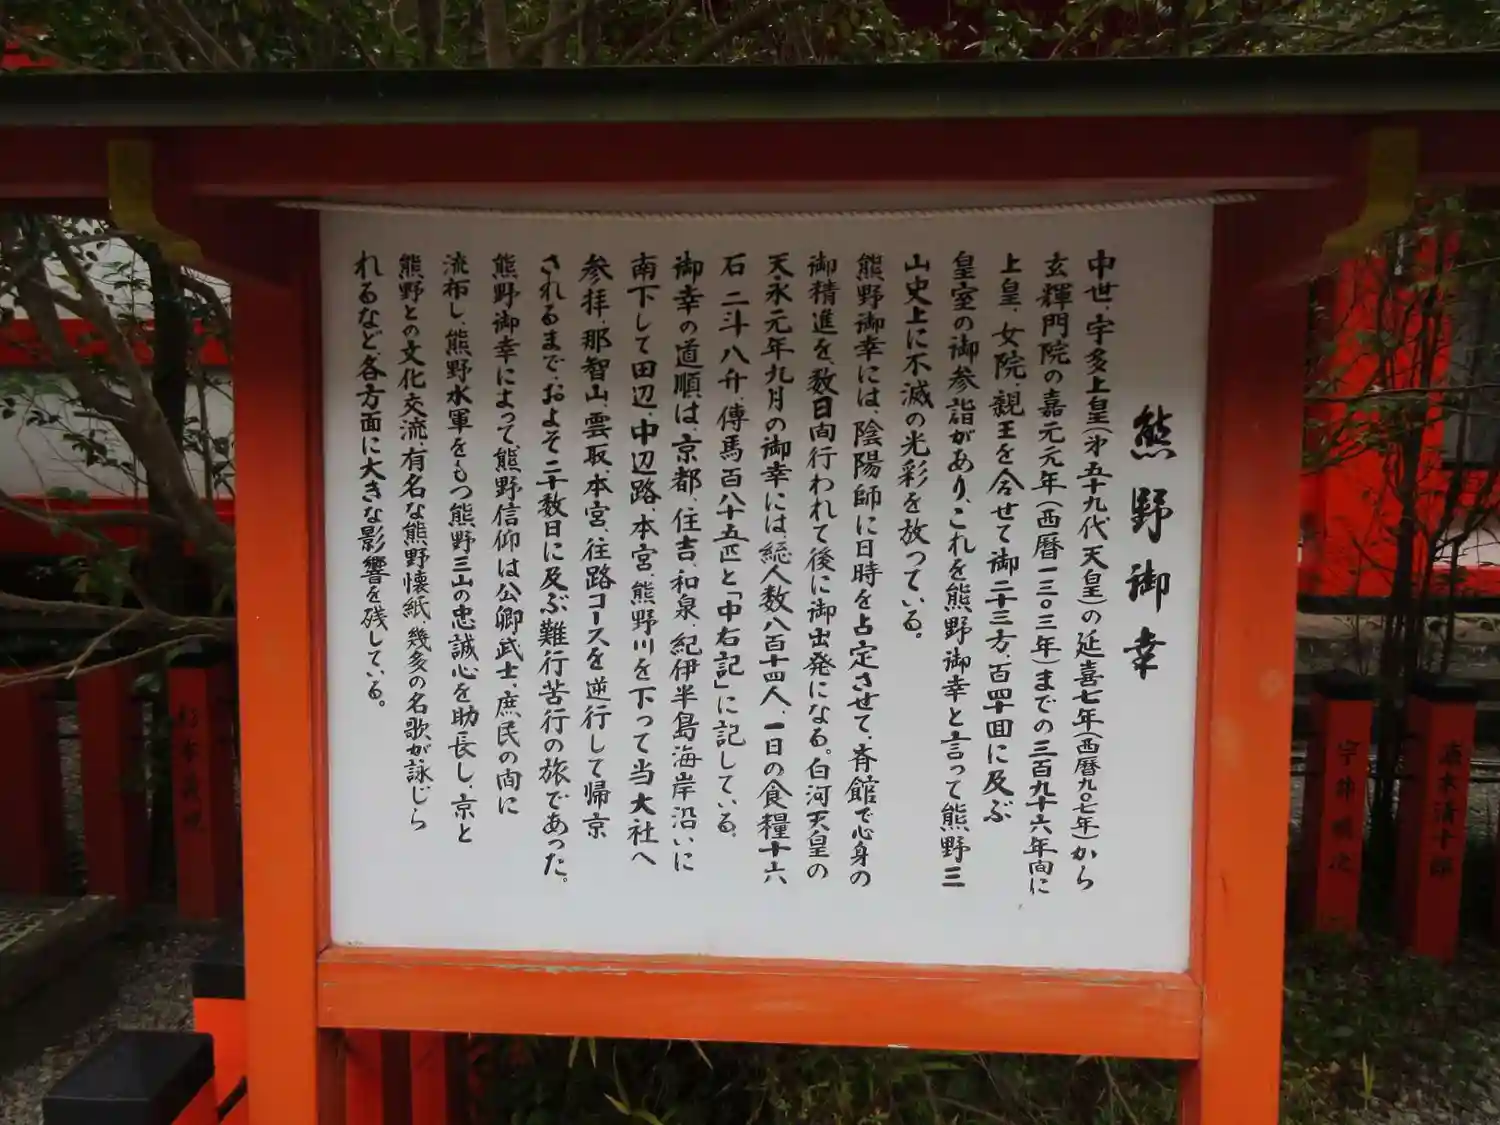 熊野御幸
中世、宇多上皇(才五十九代天皇)の延喜七年(西暦九〇七年)から
玄輝門院の嘉元元年(西暦一三〇三年)までの三百九十六年间に
上皇、女院、親王を合せて御二十三方、百四十回に及ぶ
皇室の御参詣があり、これを熊野御幸と言って熊野三
山史上に不滅の光彩を放っている。
熊野御幸には、陰陽師に日時を占定させて、斉館で心身の
御精進を、数日间行われて後に御出発になる。白河天皇の
天永元年九月の御幸には、総人数八百十四人、一日の食糧十六
石 二斗八升、傳馬百八十五匹と「中右記」に記している。
御幸の道順は、京都、住吉、和泉、紀伊半島海岸沿いに
南下して田辺、中辺路、本宮、熊野川を下って当大社へ
参拝、那智山、雲取、本宮、往路コースを逆行して帰京
されるまで、およそ二十数日に及ぶ難行苦行の旅であった。
熊野御幸によって、熊野信仰は公卿、武士、庶民の间に
流布し、熊野水軍をもつ熊野三山の忠誠心を助長し、京と
熊野との文化交流、有名な熊野懐紙、幾多の名歌が詠じら
れるなど、各方面に大きな影響を残している。